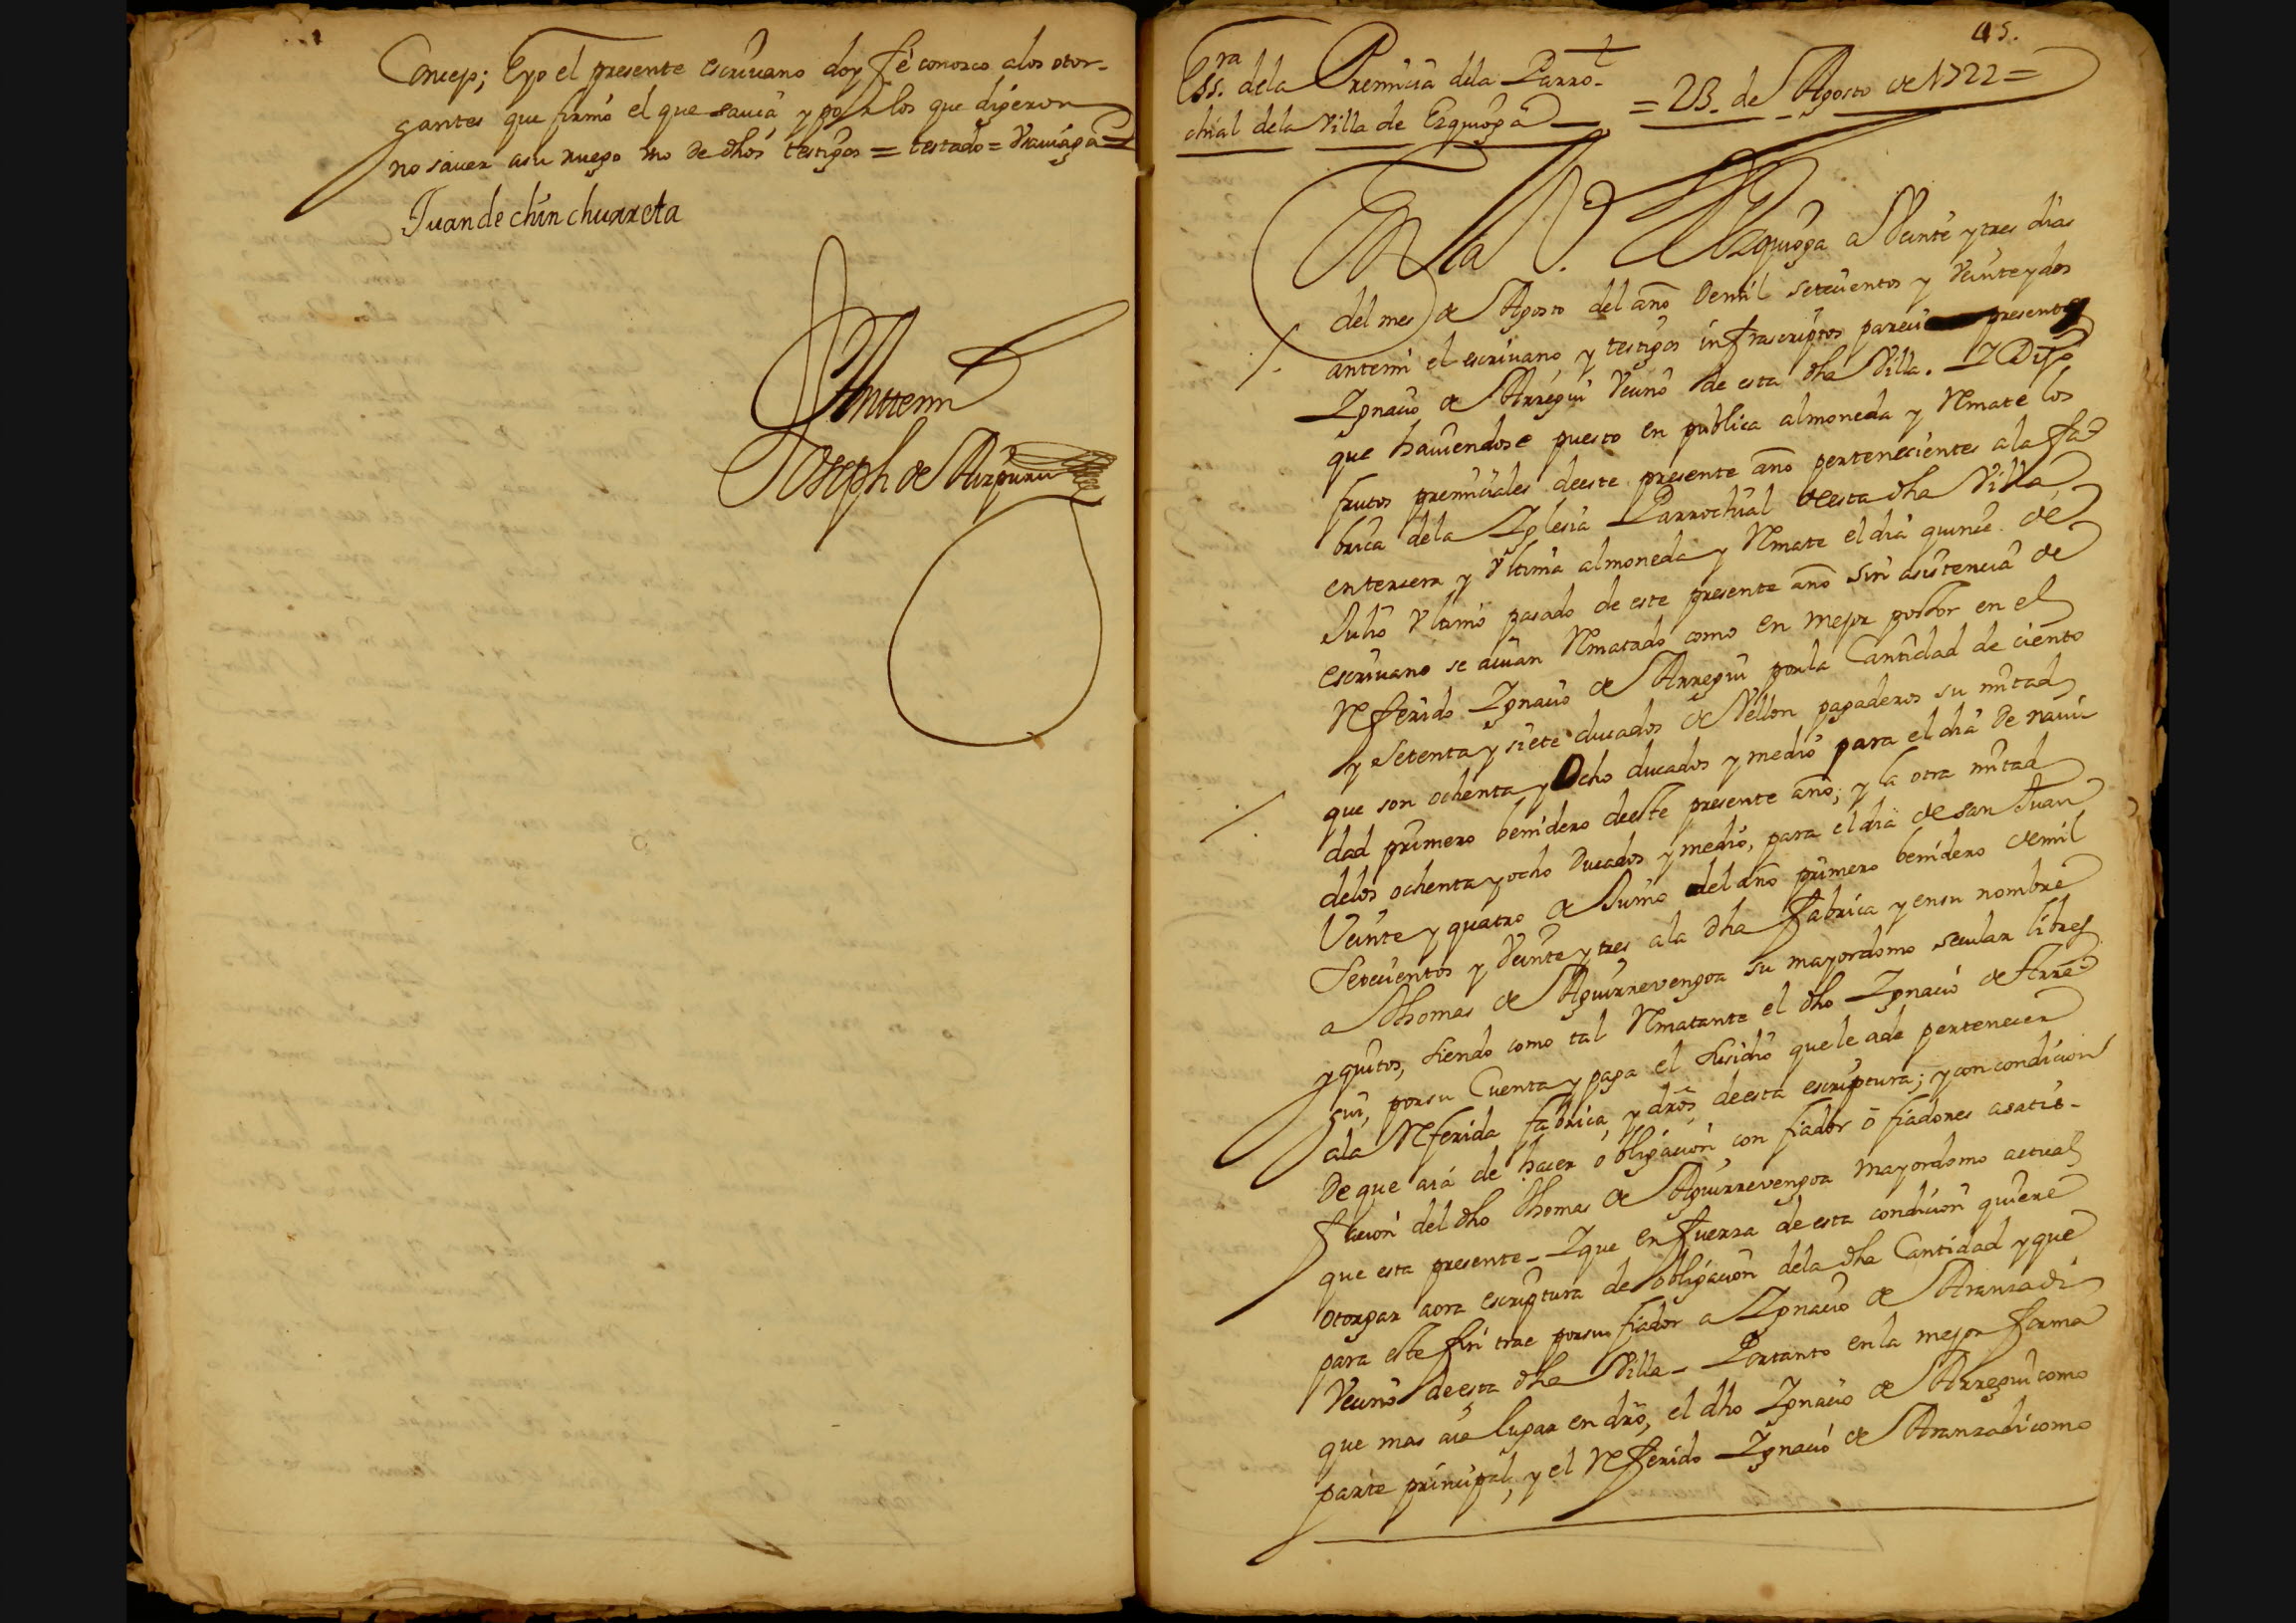 Concep; Eyo el presente escriuano doy fé conozco alos otor-
gantes que firmó el que sauia y por los que digeron
no sauer asu ruego vno de dhos testigos = testado =
Juan de chinchurreta
Antemi
Joseph de Aizpuru
45.
Essra. dela Premicia dela Parro-
chial dela Villa de Ezquioga
= 23. de Agosto de 1722 =
En la V.ª de Ezquioga a Veinte y tres dias
del mes de Agosto del año demil setecientos y Veinte y dos
antemi el escriuano y testigos infrascriptos pareció presente
Ignacio de Arregui Vecino de esta dha Villa. Y Dijo
que hauiendose puesto en publica almoneda y Remate los
frutos premiciales deeste presente año pertenecientes ala fa
brica dela Iglesia Parrochial deesta dha Villa
entercera y Vltima almoneda y Remate el dia quince de
Julio Vltimo pasado de este presente año sin asistencia de
escriuano se auian Rematado como en mejor postor en el
Referido Ignacio de Arregui porla Cantidad de ciento
y setenta y siete ducados de Vellon pagaderos su mitad
que son ochenta y ocho ducados y medio para el dia de naui
dad primero benidero deeste presente año; y la otra mitad
delos ochenta y ocho ducados y medio, para el dia de san Juan
Veinte y quatro de Junio del año primero benidero demil
Setecientos y Veinte y tres ala dha fabrica y ensu nombre
a Thomas de Aguirrevengoa su mayordomo secular libres
y quitos, siendo como tal Rematante el dho Ignacio de Arre
gui, porsu Cuenta y paga el susidio quele ade pertenecer
ala Referida fabrica, y dros deesta escriptura; y con condicion
De que aiá de hacer obligacion con fiador ó fiadores asatis-
facion del dho Thomas de Aguirrevengoa mayordomo actual
que esta presente - Y que en fuerza de esta condicion quiere
otorgar aora escriptura de obligacion dela dha Cantidad y que
para este fin trae porsu fiador a Ignacio de Aranzadi
Vecino deesta dha Villa - Portanto en la mejor forma
que mas aia lugar en dro, el dho Ignacio de Arregui como
parte principal, y el Referido Ignacio de Aranzadi como